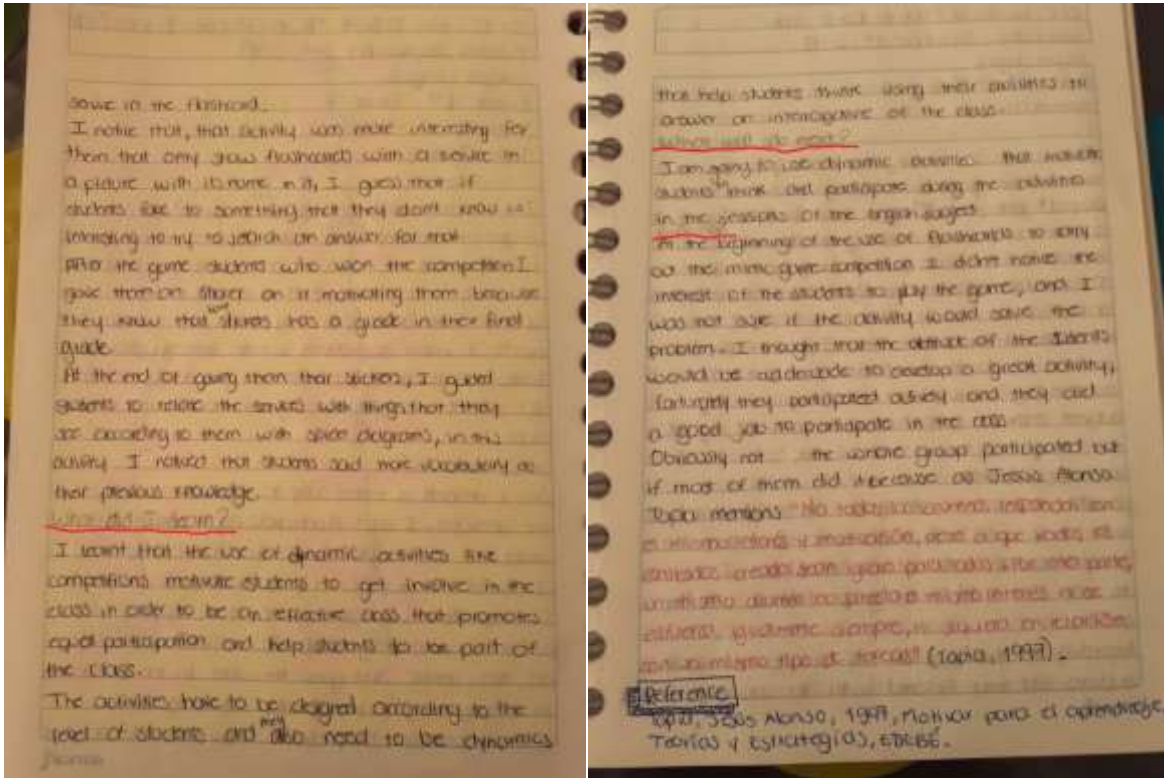 in the flashcard.
I notice that, that activity was more interesting for
them that only show flashcards with a in
a picture with its name in it, I guess that if
students face to something that they don't know is
interesting to try to search an answer for that
After the game students who won the competition I
gave them an on it motivating them because
they know that has a grade in their final
grade.
At the end of giving them their stickers, I guided
students to relate the services with things that they
see according to them with spice diagrams, in this
activity I noticed that students said more vocabulary as
their previous knowledge.
What did I learn?
I learnt that the use of dynamic activities like
competitions motivate students to get involve in the
class in order to be an effective class that promotes
equal participation and help students to be part of
the class.
The activities have to be according to the
level of students and they also need to be dynamics
that help students think using their abilities to
answer an interrogative of the class.
What will do next?
I am going to use dynamic activities that motivate
students think and participate during the activities
in the of the english subject.
At the beginning of the use of flashcards to carry
out the mimic game competition I didn't notice the
interest of the students to play the game, and I
was not sure if the activity would solve the
problem. I thought that the attitude of the
would be to develop a great activity,
they participated and they did
a good job to participate in the class
Obviously not the whole group participated but
if most of them did it because as Jesús Alonso
Tapia mentions "No todos los
motivación,
creados sean igual para todos parte,
un mismo alumno interés
igualmente siempre, ni en relación
con un mismo tipo de tareas" (Tapia, 1997).
Reference
Tapia, Jesús Alonso, 1997, Motivar para el aprendizaje,
Teorías y Estrategias, EDEBÉ.